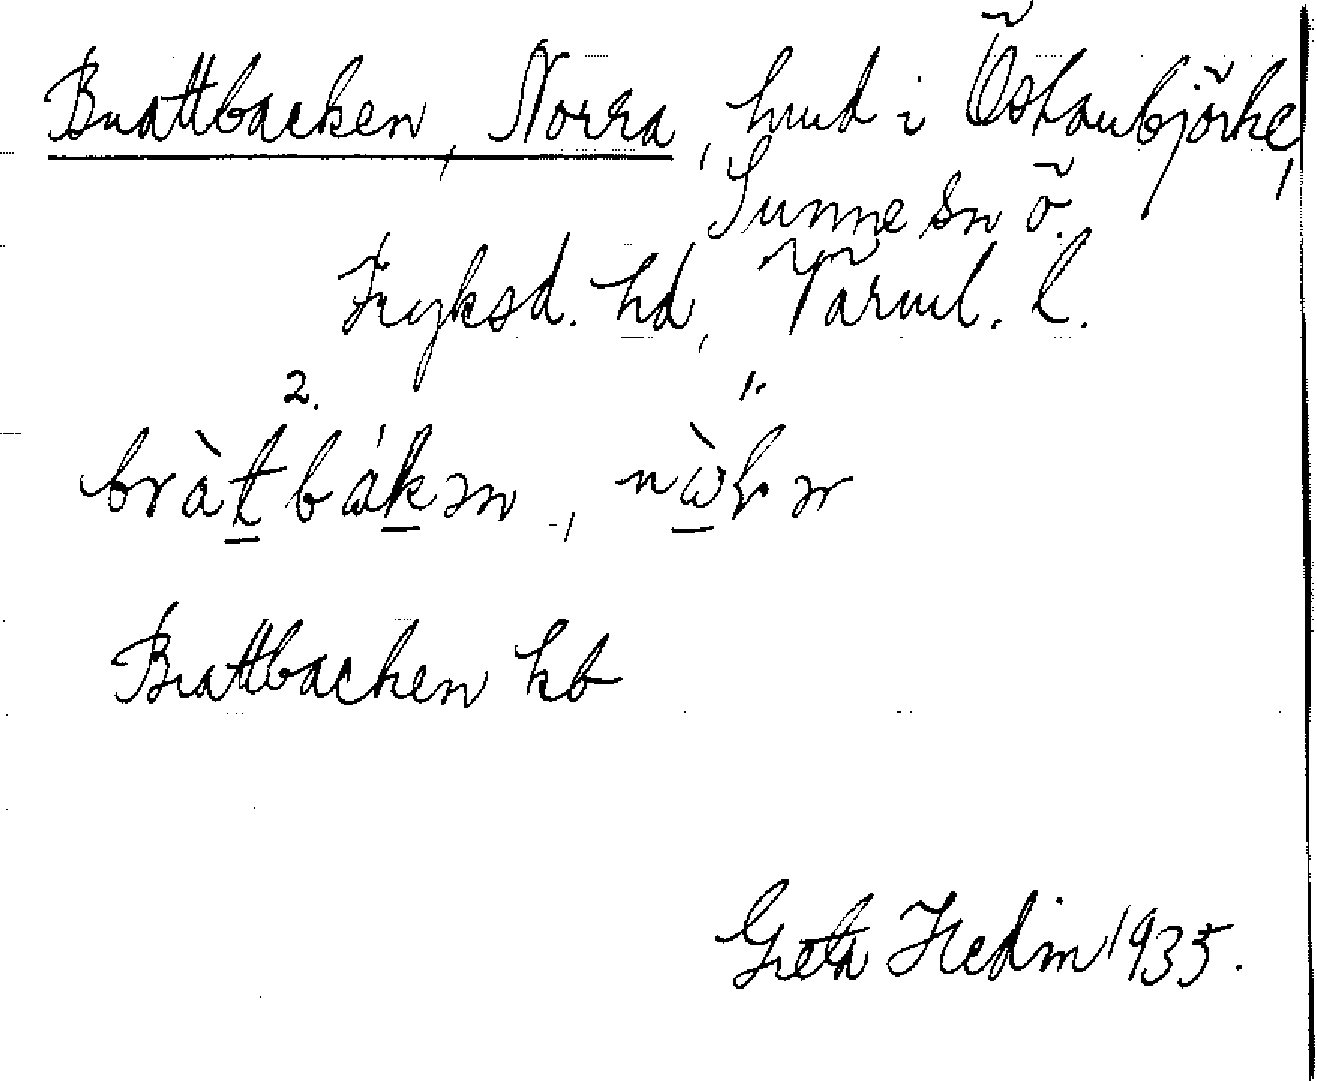 Brattbacken, Norra, hmd i Östanbjörke,
Sunne sn ö.
Fryksd. hd, Värml. l.
2. 1.
bràt̲bák̲ən, nὼ̲r ər
Brattbacken kb
Greta Hedin 1935.